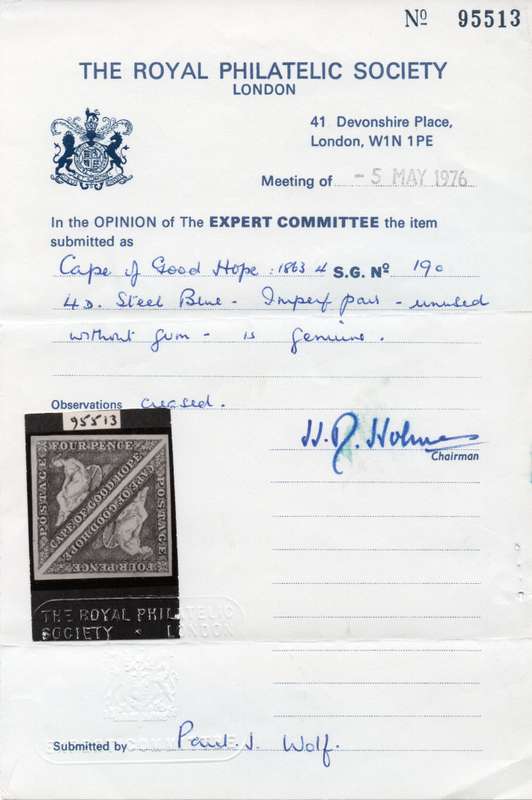 Nº 95513
THE ROYAL PHILATELIC SOCIETY
LONDON
41 Devonshire Place,
London, W1N 1PE
Meeting of - 5 MAY 1976
In the OPINION of The EXPERT COMMITTEE the item
submitted as
Cape of Good Hope : 1863 4 S.G. Nº 19c
4D. Steel Blue - Imperf pair - unused
without gum - is genuine.
Observations creased.
H. R. Holmes
Chairman
95513
FOUR PENCE
POSTAGE
CAPE OF GOOD HOPE
CAPE OF GOOD HOPE
POSTAGE
FOUR PENCE
THE ROYAL PHILATELIC
SOCIETY LONDON
Submitted by Paul. J. Wolf.